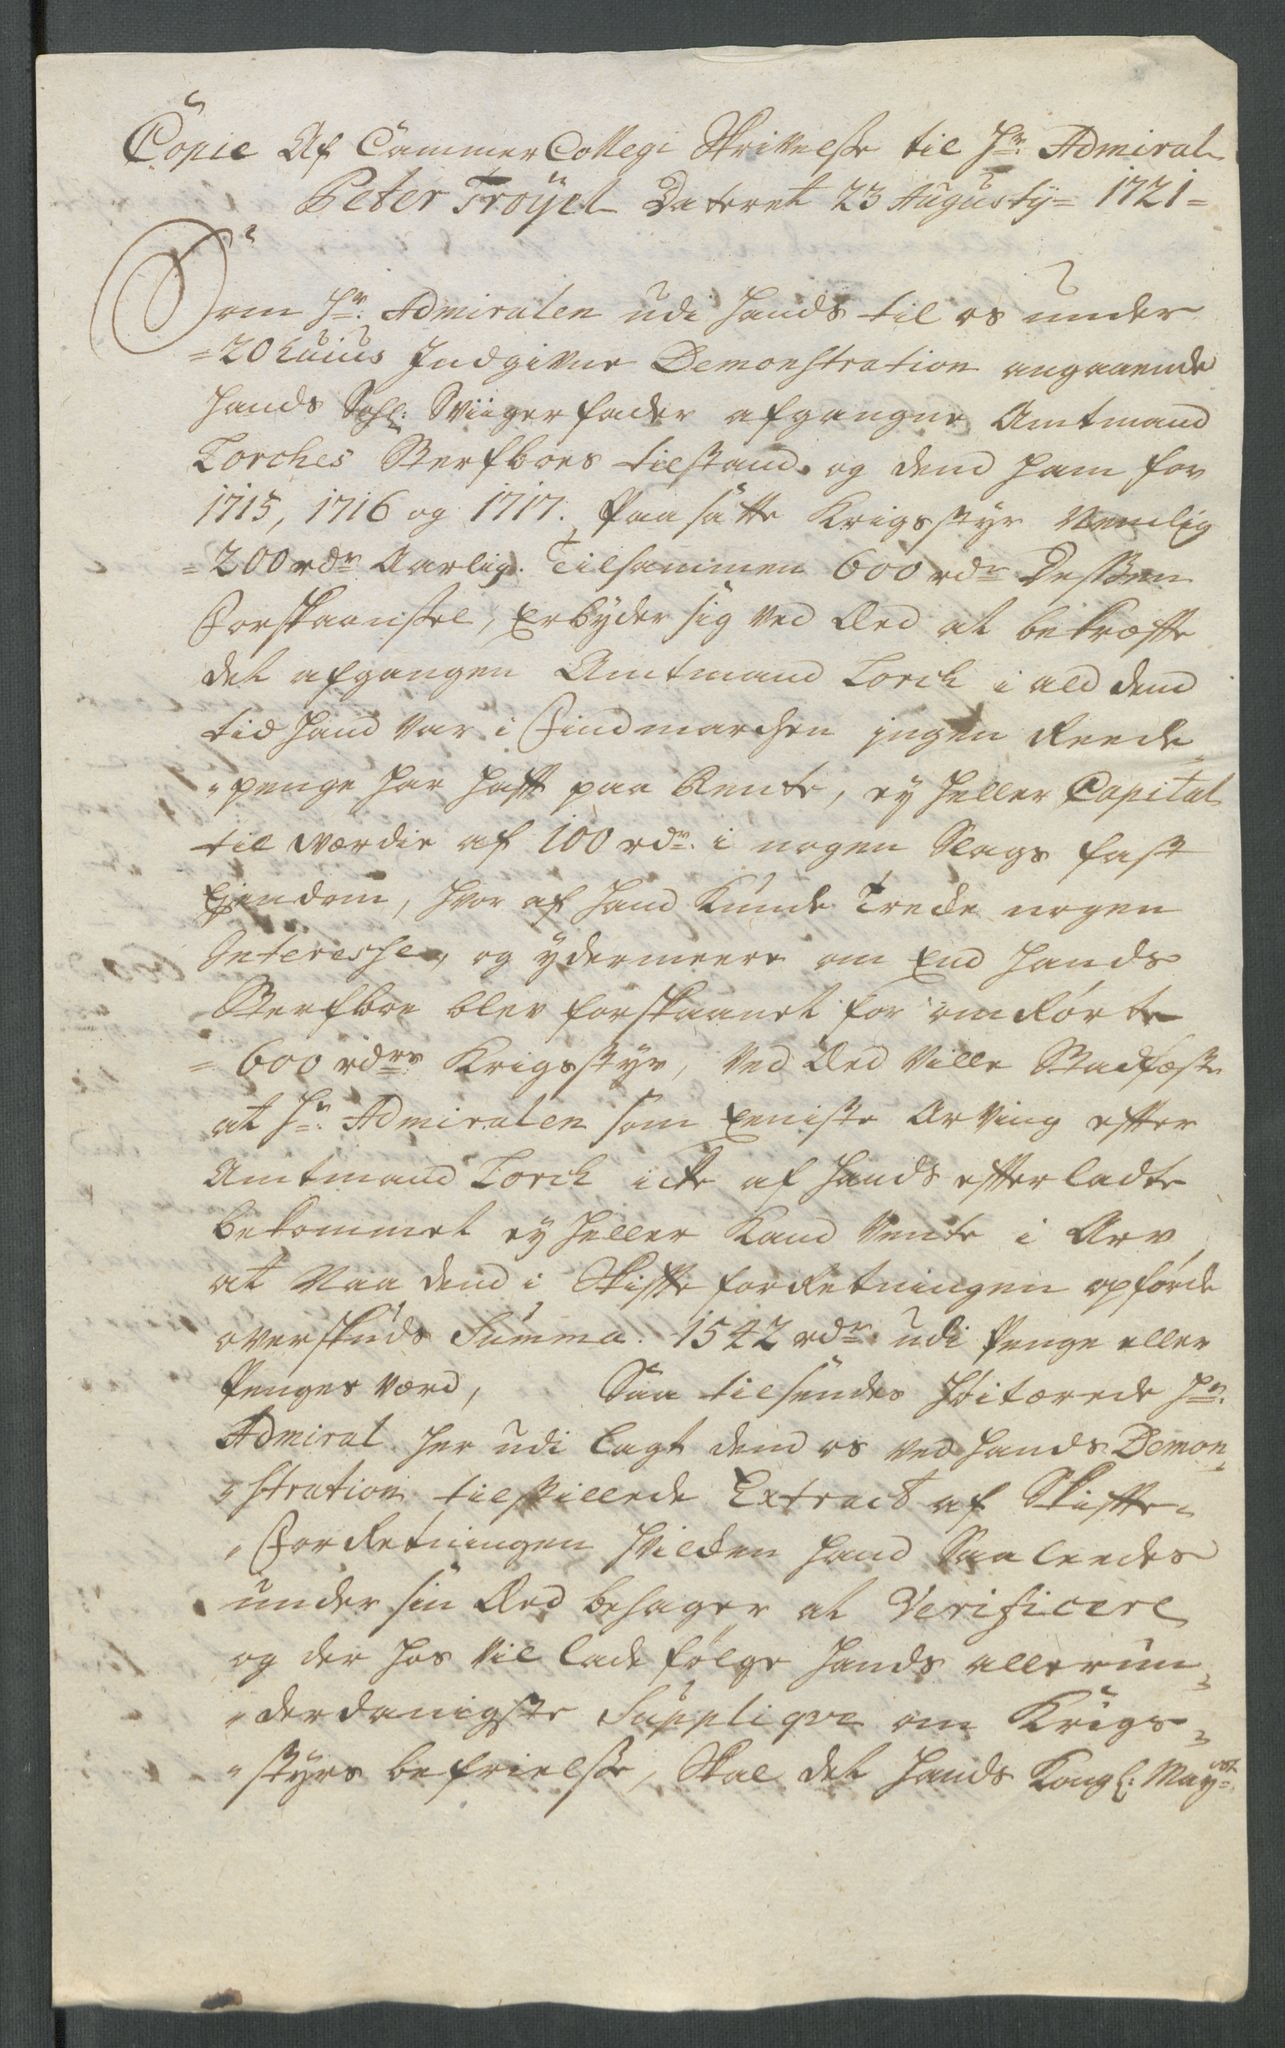 Copie Af Cammer Collegi Skrivelse til Hr. Admiral
Peter Tröyel Dateret 23 Augusty= 1721=
Som Hr. Admiralen udi hands til os under
=20 huius Indgivne Demonstration angaaende
hands Sahl: Sviigerfader afgangne Amtmand
Lorches Sterfboes tilstand og dend ham for
1715, 1716 og 1717. Paasatte Krigsstyr Nemlig
=200 rdr Aarlig. Tilsammen 600 rdr Dessen
Forskaansel, Erbyder sig ved Eed at bekræffte
det afgangen Amtmand Lorch i ald dend
tid hand var i Findmarchen ingen Reede
"penge har hafft paa Rente, ey heller Capital
til værdie af 100 rdr. i nogen Slags fast
Ejendom, hvor af hand Kunde Trecke nogen
Interesse, og ydermeere om End hands
Sterfboe blev forskaanet for omrörte
=600 rdrs Krigsstyr, ved Eed ville Stadfæste
at Hr. Admiralen som Eeniste Arving efter
Amtmand Lorch icke af hands efterladte
bekommet ey heller Kand vente i Arv
at Naa dend i Skiffte forretningen opförde
overskuds Summa. 1542 rdr. udi Penge eller
Penges værd, Saa tilsendes Höitærede Hr.
Admiral her udi lagt dend os ved hands Demon,
"stration tilstillede Extract af Skiffte,
"Forretningen hvilcken hand Saaleedes
under sin Eed behager at Verificere
og der hos vil lade fölge hands allerun,
"derdanigste Supplique om Krigs,
"styrs befrielse, Skal det hands Kongl: Mayst.